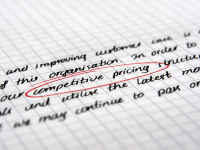 and improving customer care is a
of this organisation. In order to
our competitive pricing structure
and utilise the latest mo
we may continue to pass on